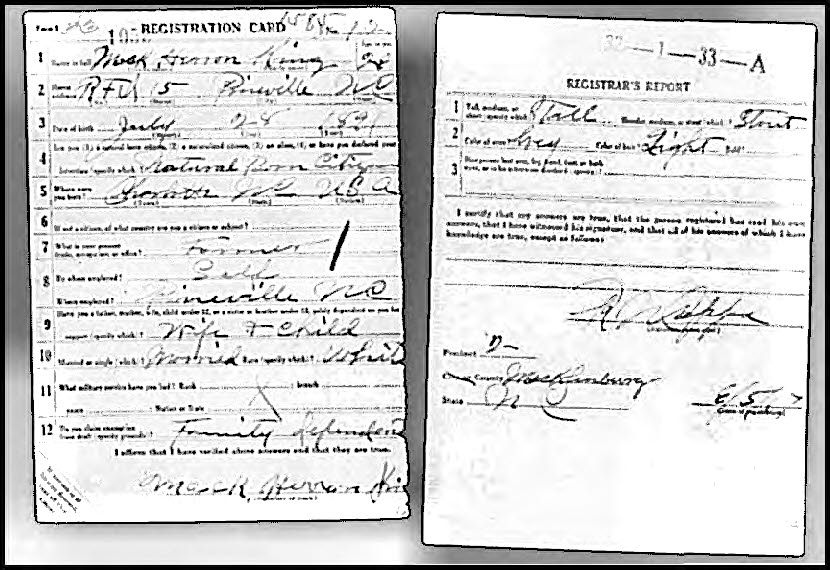 REGISTRATION CARD
1 Name in full Mack Herron King
Age in yrs
2 Home address RFD 15 Pineville NC
3 Date of birth July 28
4 Are you (1) a natural born citizen, (2) a naturalized citizen, (3) an alien, (4) or have you declared your
intention (specify which)? Natural Born Citizen
5 Where were you born? Charlotte NC USA
6 If not a citizen, of what country are you a citizen or subject?
7 What is your present trade, occupation or office? Farmer
8 By whom employed? Self
Where employed? Pineville NC
9 Have you a father, mother, wife, child under 12, or a sister or brother under 12, solely dependent on you for
support (specify which)? Wife & Child
10 Married or single (which)? Married Race (specify which)? White
11 What military service have you had? Rank branch
years Nation or State
12 Do you claim exemption from draft (specify grounds)? Family dependent
I affirm that I have verified above answers and that they are true.
Mack Herron
32—1—33—A
REGISTRAR'S REPORT
1 Tall, medium, or short (specify which)? Tall Slender, medium, or stout (which)? Stout
2 Color of eyes? Grey Color of hair? Light Bald?
3 Has person lost arm, leg, hand, foot, or both
eyes, or is he otherwise disabled (specify)?
I certify that my answers are true, that the person registered has read his own
answers, that I have witnessed his signature, and that all of his answers of which I have
knowledge are true, except as follows:
Precinct
County Mecklenburg
State N C
(Date of registration)